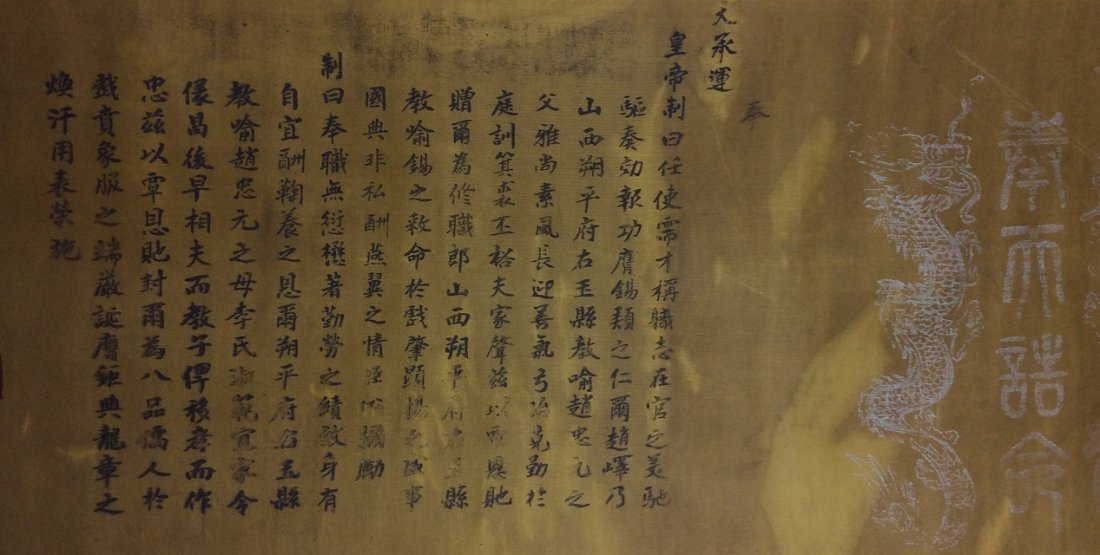 奉天誥命
奉
天承運
皇帝制曰任使需才稱職志在官之美馳
驅奏効報功膺錫類之仁爾趙嶧乃
山西朔平府右玉縣教喻趙忠元之
父雅尚素風長迎善氣弓冶克勤於
庭訓箕裘丕裕夫家聲茲以覃恩貤
贈爾為修職郎山西朔平府右玉縣
教喻錫之敕命於戲肇顯揚之盛事
國典非私酬燕翼之情臣心彌勵
制曰奉職無愆懋著勤勞之績致身有
自宜酬鞠養之恩爾朔平府右玉縣
教喻趙忠元之母李氏淑範宜家令
儀昌後早相夫而教子俾移孝而作
忠茲以覃恩貤封爾為八品孺人於
戲賁象服之端嚴誕膺鉅典龍章之
煥汗用表榮施